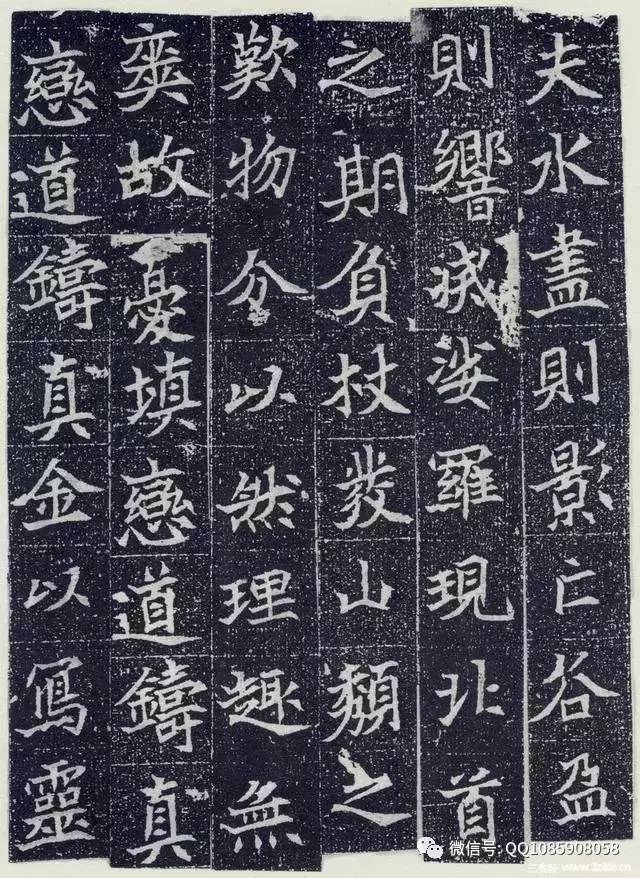 夫水盡則影亡谷盈
則響滅娑羅現北首
之期負杖發山頹之
歎物分以然理趣無
爽故憂填戀道鑄真
戀道鑄真金以寫靈
微信号: QQ1085908058